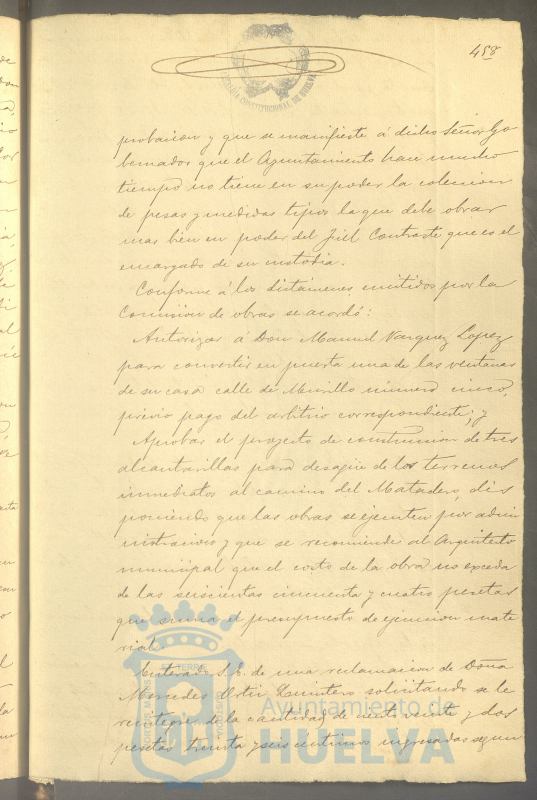 458
probacion y que se manifieste á dicho Señor Go
bernador que el Ayuntamiento hace mucho
tiempo no tiene en su poder la coleccion
de pesas y medidas tipos la que debe obrar
mas bien en poder del Fiel Contraste que es el
encargado de su custodia.
Conforme á los dictámenes emitidos por la
Comision de obras se acordó:
Autorizar á Don Manuel Vazquez Lopez
para convertir en puerta una de las ventanas
de su casa calle de Murillo número cinco,
previo pago del arbitrio correspondiente; y
Aprobar el proyecto de construccion de tres
alcantarillas para desagüe de los terrenos
inmediatos al camino del Matadero, dis
poniendo que las obras se ejecuten por admi
nistracion y que se recomiende al Arquitecto
municipal que el costo de la obra no exceda
de las seiscientas cincuenta y cuatro pesetas
que suma el presupuesto de ejecucion mate
rial.
Enterado S. E. de una reclamacion de Doña
Mercedes Ortiz Quintero solicitando se le
reintegre de la cantidad de ciento veinte y dos
pesetas treinta y seis centimos ingresadas segun
Ayuntamiento de
HUELVA